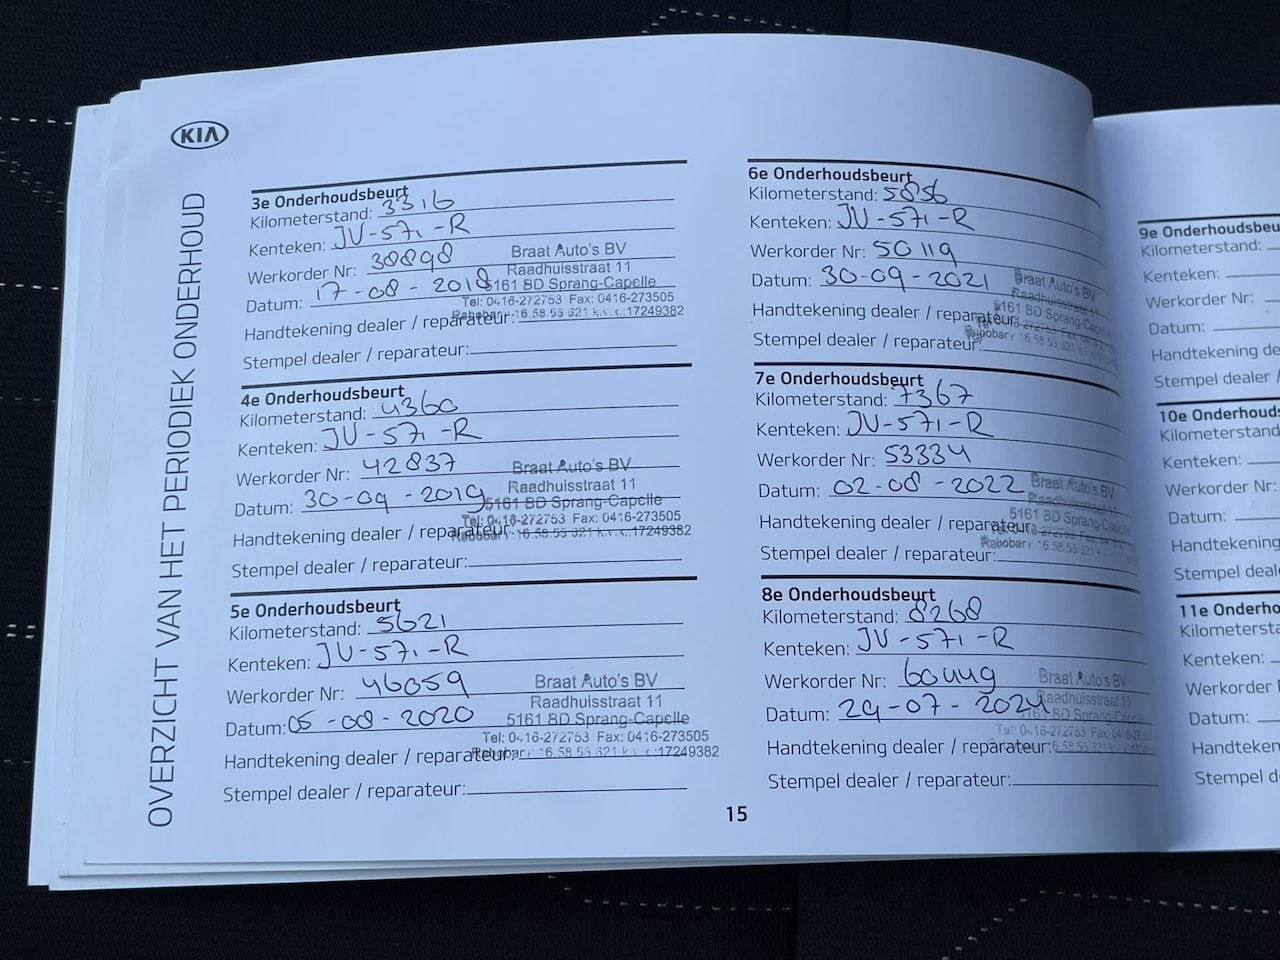 KIA
OVERZICHT VAN HET PERIODIEK ONDERHOUD
3e Onderhoudsbeurt
Kilometerstand: 3316
Kenteken: JV-571-R
Werkorder Nr: 30898
Datum: 17-08-2018
Handtekening dealer / reparateur:
Stempel dealer / reparateur:
Braat Auto's BV
Raadhuisstraat 11
5161 BD Sprang-Capelle
Tel: 0416-272753 Fax: 0416-273505
Rabobank 16.58.56.321 k.v.k.:17249382
4e Onderhoudsbeurt
Kilometerstand: 4360
Kenteken: JV-571-R
Werkorder Nr: 42837
Datum: 30-09-2019
Handtekening dealer / reparateur:
Stempel dealer / reparateur:
Braat Auto's BV
Raadhuisstraat 11
5161 BD Sprang-Capelle
Tel: 0416-272753 Fax: 0416-273505
17249382
5e Onderhoudsbeurt
Kilometerstand: 5621
Kenteken: JV-571-R
Werkorder Nr: 46059
Datum: 05-08-2020
Handtekening dealer / reparateur:
Stempel dealer / reparateur:
Braat Auto's BV
Raadhuisstraat 11
5161 BD Sprang-Capelle
Tel: 0416-272753 Fax: 0416-273505
17249382
6e Onderhoudsbeurt
Kilometerstand: 5856
Kenteken: JV-571-R
Werkorder Nr: 50119
Datum: 30-09-2021
Handtekening dealer / reparateur:
Stempel dealer / reparateur:
Braat Auto's BV
Raadhuisstraat 11
5161 BD Sprang-Capelle
7e Onderhoudsbeurt
Kilometerstand: 7367
Kenteken: JV-571-R
Werkorder Nr: 53334
Datum: 02-08-2022
Handtekening dealer / reparateur:
Stempel dealer / reparateur:
Braat Auto's BV
Raadhuisstraat 11
5161 BD Sprang-Capelle
8e Onderhoudsbeurt
Kilometerstand: 8268
Kenteken: JV-571-R
Werkorder Nr: 60449
Datum: 29-07-2024
Handtekening dealer / reparateur:
Stempel dealer / reparateur:
Braat Auto's BV
Raadhuisstraat 11
5161 BD Sprang-Capelle
Tel: 0416-272753 Fax:
15
9e Onderhoudsbeu
Kilometerstand:
Kenteken:
Werkorder Nr:
Datum:
Handtekening de
Stempel dealer /
10e Onderhouds
Kilometerstand
Kenteken:
Werkorder Nr:
Datum:
Handtekening
Stempel deal
11e Onderho
Kilometersta
Kenteken:
Werkorder
Datum:
Handteken
Stempel d